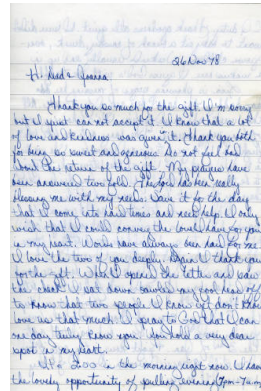 26 Nov 78
Hi Redd & Joanna
Thank you so much for the gift. I'm sorry
but I just can not accept it. I know that a lot
of love and kindness was given it. Thank you both
for being so sweet and generous. Do not feel bad
about the return of the gift. My prayers have
been answered two fold. The Lord has been really
blessing me with my needs. Save it for the day
that I come into hard times and need help. I only
wish that I could convey the love I have for you
in my heart. Words have always been hard for me
I love the two of you deeply. Again I thank you
for the gift. When I opened the letter and saw
the check I sat down my head off
to know that two people I know yet don't know
love me that much. I pray to God that I can
one day truly know you. You hold a very dear
spot in my heart.
It's 2:00 in the morning right now. I have
the lovely opportunity of pulling (7pm-7am)